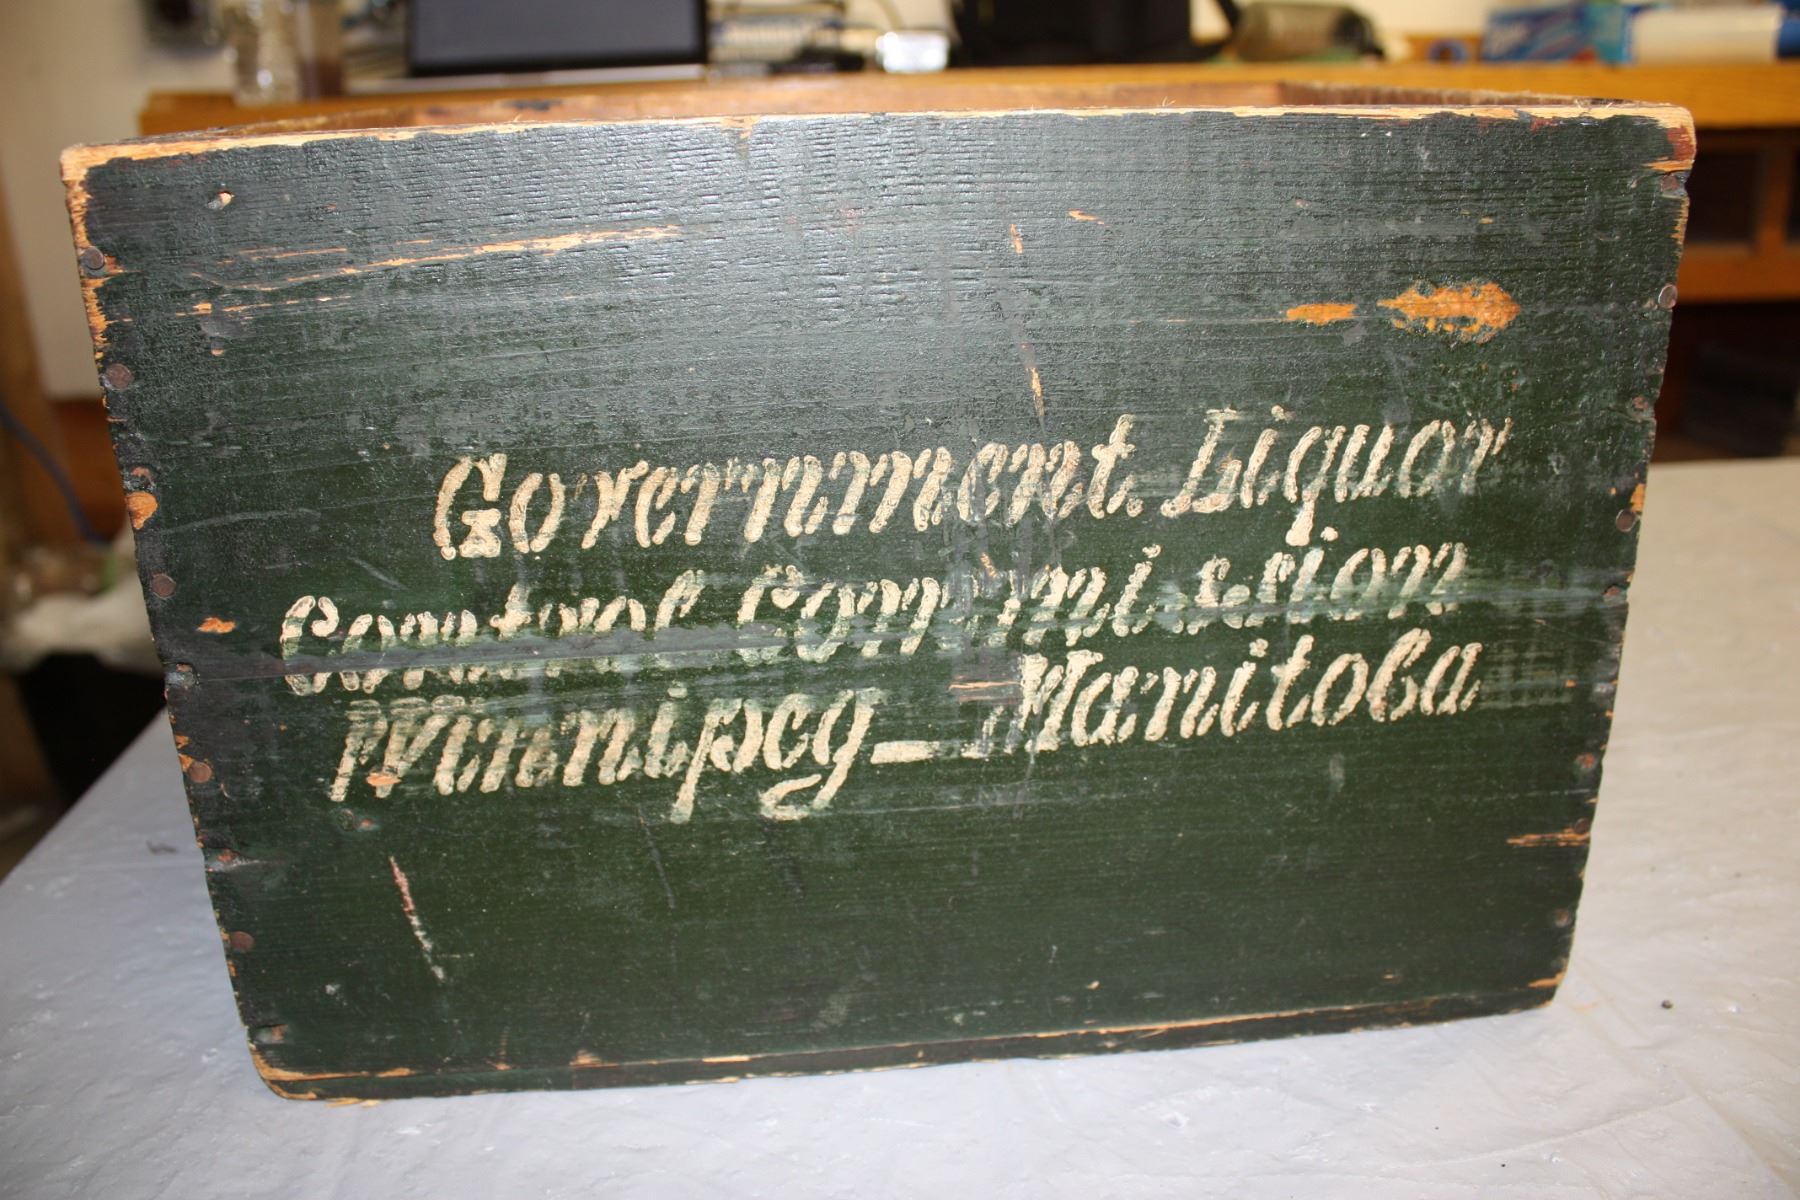 Government Liquor
Control Commission
Winnipeg – Manitoba